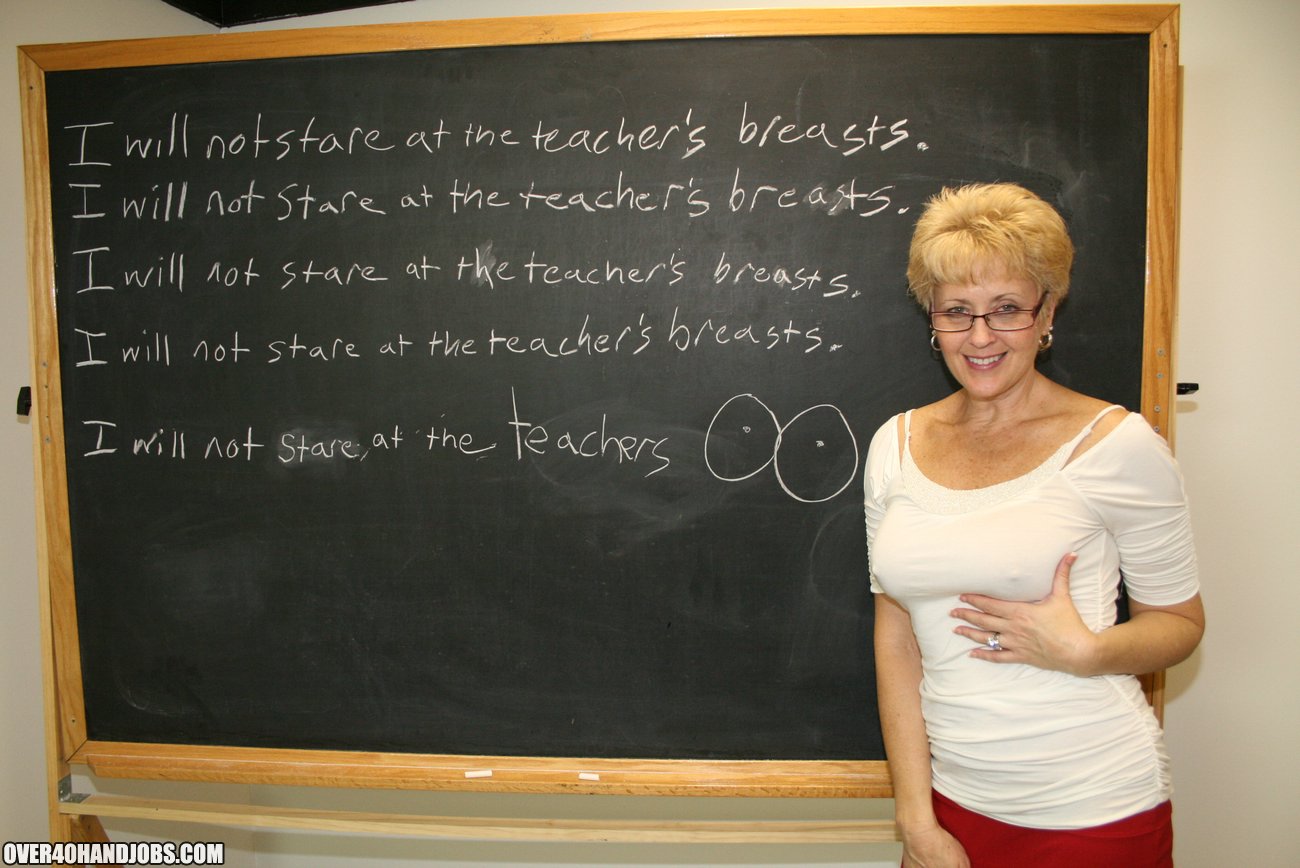 I will not stare at the teacher's breasts.
I will not stare at the teacher's breasts.
I will not stare at the teacher's breasts.
I will not stare at the teacher's breasts.
I will not stare at the teachers
OVER40HANDJOBS.COM